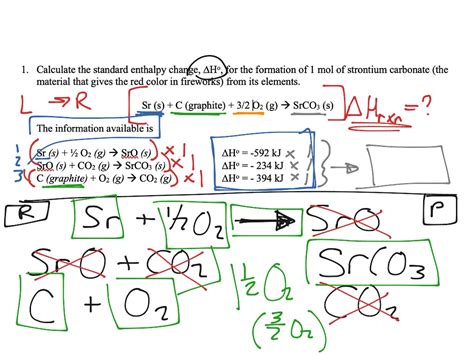 1. Calculate the standard enthalpy change, ΔHº, for the formation of 1 mol of strontium carbonate (the
material that gives the red color in fireworks) from its elements.
L → R
Sr (s) + C (graphite) + 3/2 O₂ (g) → SrCO₃ (s)
ΔHrxn = ?
The information available is
1 Sr (s) + ½ O₂ (g) → SrO (s) x 1 ΔHº = -592 kJ x 1
2 SrO (s) + CO₂ (g) → SrCO₃ (s) x 1 ΔHº = - 234 kJ x 1
3 C (graphite) + O₂ (g) → CO₂ (g) x 1 ΔHº = - 394 kJ x 1
R P
Sr + ½ O₂ → SrO
SrO + CO₂ SrCO₃
C + O₂ 1 ½ O₂ CO₂
(3/2 O₂)